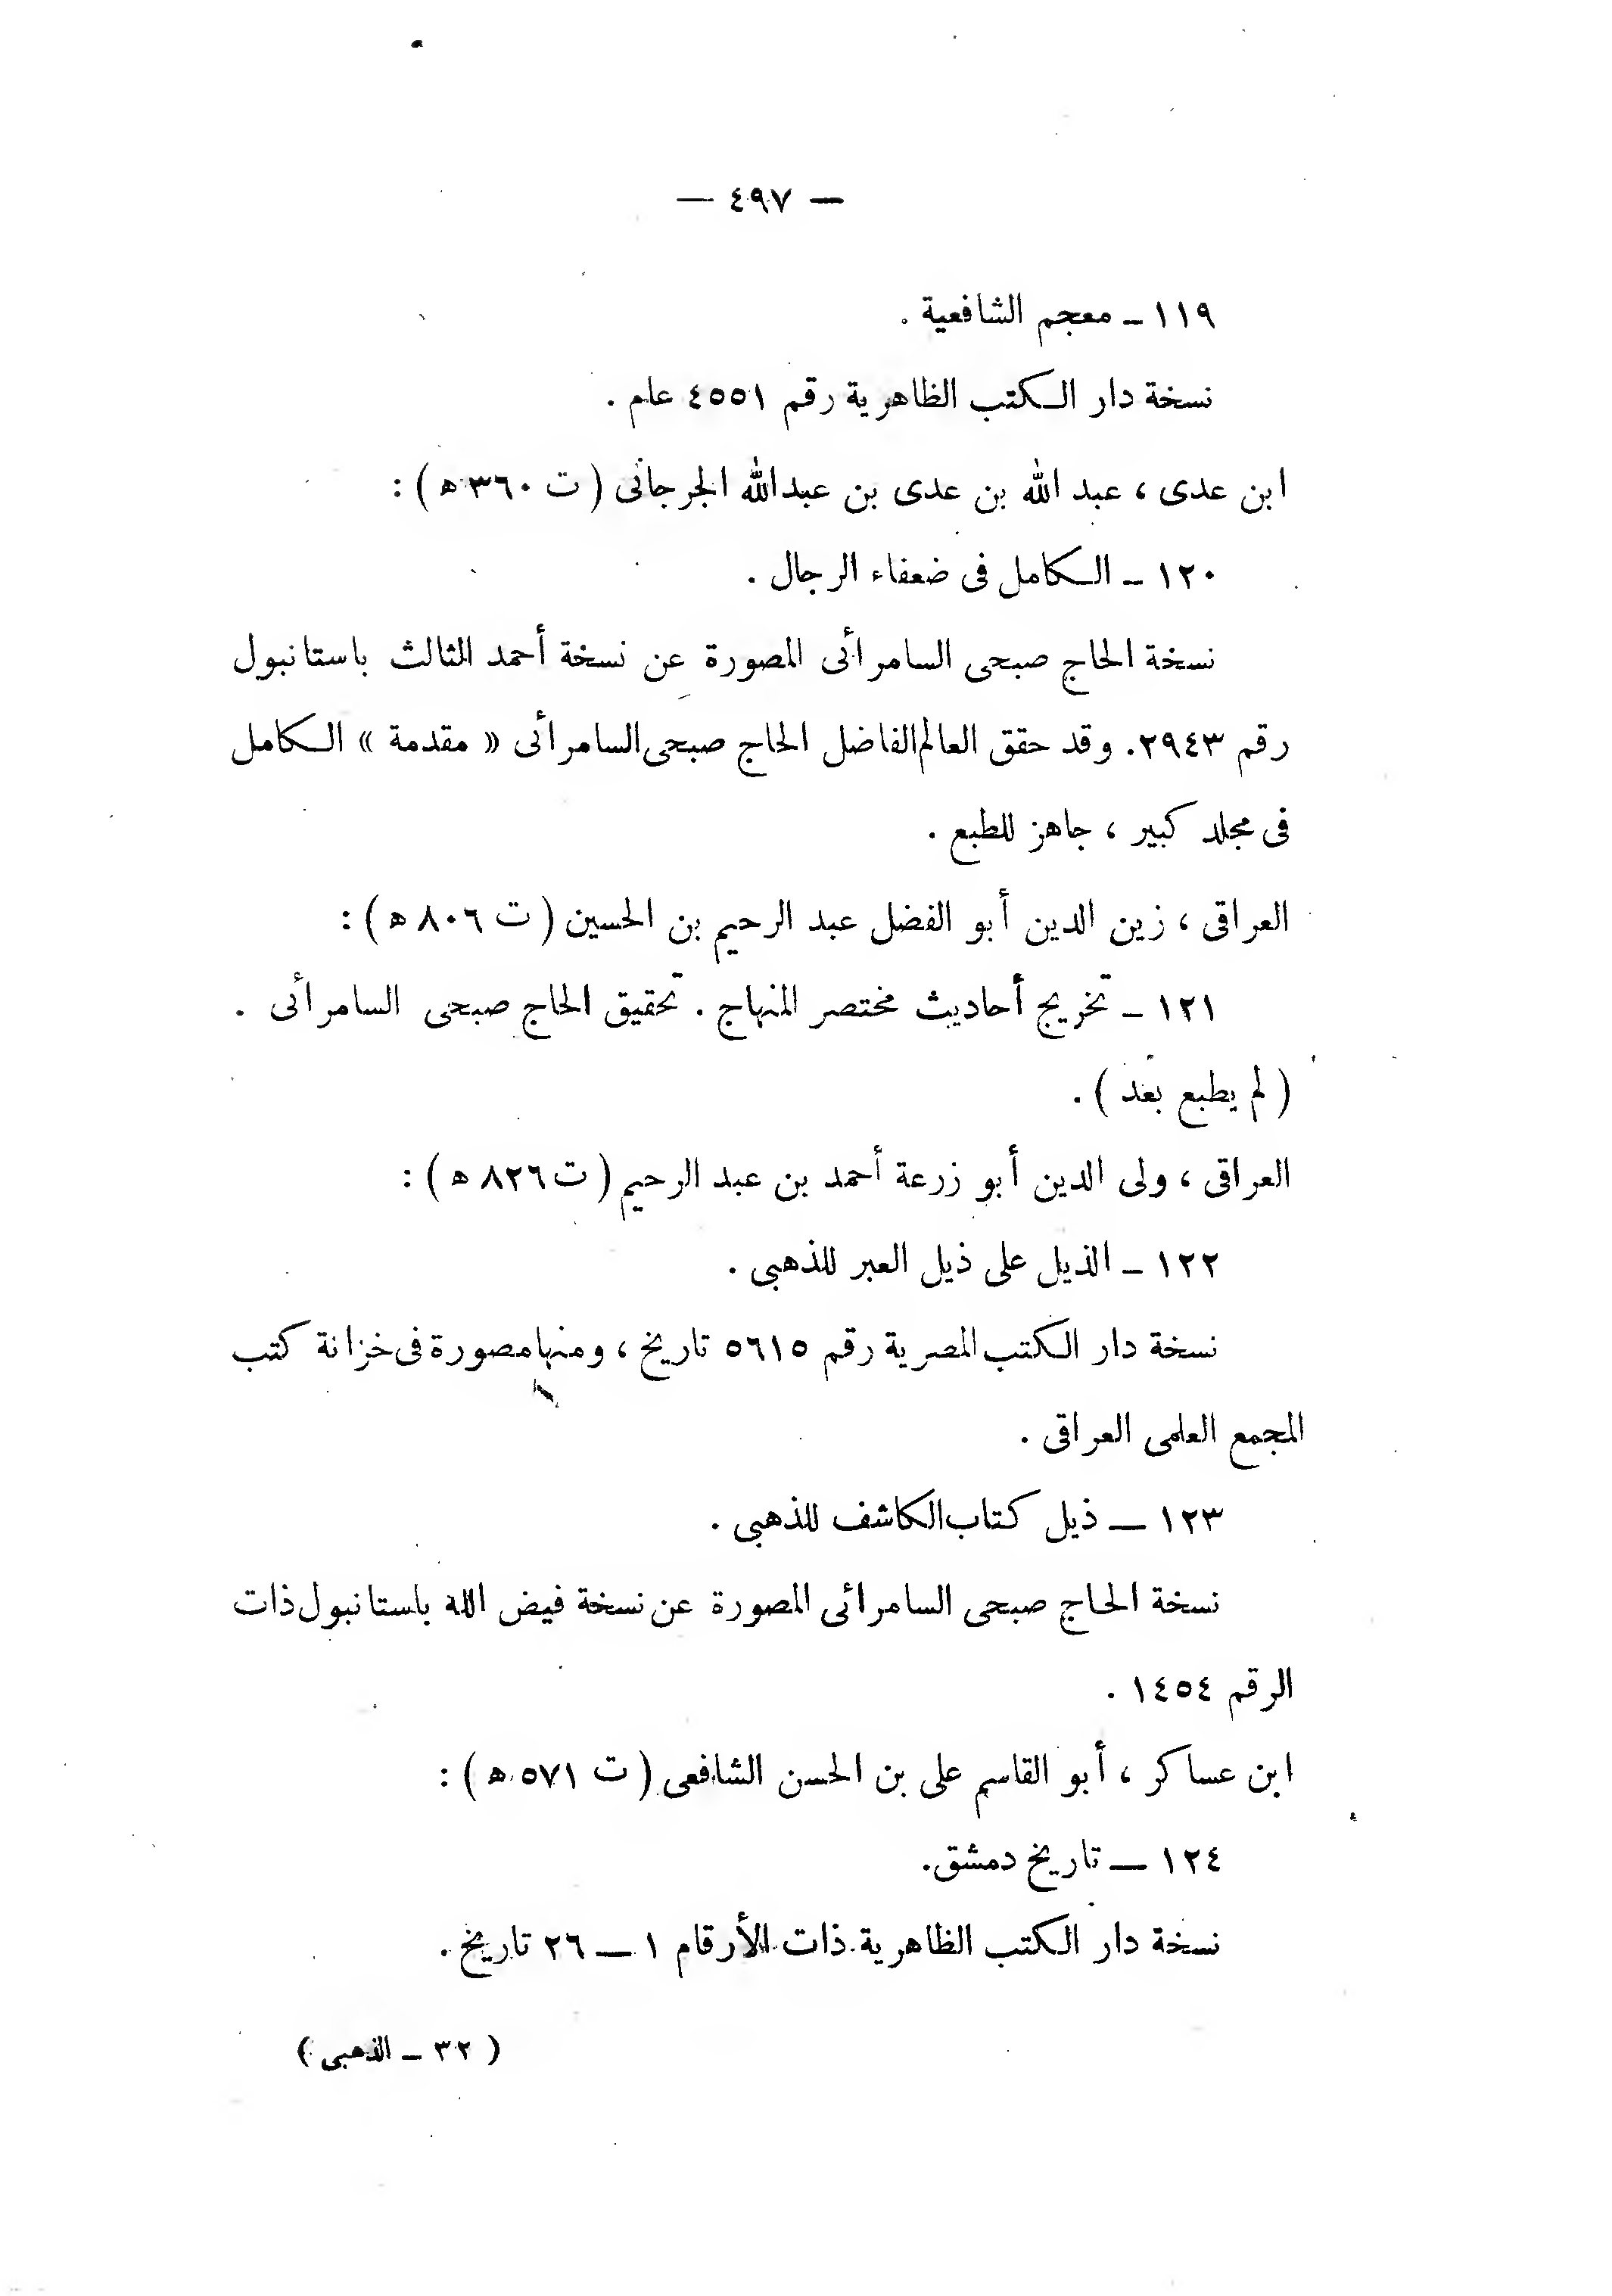 — ٤٩٧ —
١١٩ – معجم الشافعية .
نسخة دار الكتب الظاهرية رقم ٤٥٥١ عام .
ابن عدى ، عبد الله بن عدى بن عبدالله الجرجانى ( ت ٣٦٠ ه ) :
١٢٠ – الكامل فى ضعفاء الرجال .
نسخة الحاج صبحى السامرأئى المصورة عن نسخة أحمد الثالث باستانبول
رقم ٢٩٤٣. وقد حقق العالم الفاضل الحاج صبحى السامرأئى « مقدمة » الكامل
فى مجلد كبير ، جاهز للطبع .
العراقى ، زين الدين أبو الفضل عبد الرحيم بن الحسين ( ت ٨٠٦ ه ) :
١٢١ – تخريج أحاديث مختصر المنهاج . تحقيق الحاج صبحى السامرأئى .
( لم يطبع بعد ) .
العراقى ، ولى الدين أبو زرعة أحمد بن عبد الرحيم ( ت ٨٢٦ ه ) :
١٢٢ – الذيل على ذيل العبر للذهبى .
نسخة دار الكتب المصرية رقم ٥٦١٥ تاريخ ، ومنها مصورة فى خزانة كتب
المجمع العلمى العراقى .
١٢٣ — ذيل كتاب الكاشف للذهبى .
نسخة الحاج صبحى السامرائى المصورة عن نسخة فيض الله باستانبول ذات
الرقم ١٤٥٤ .
ابن عساكر ، أبو القاسم على بن الحسن الشافعى ( ت ٥٧١ ه ) :
١٢٤ — تاريخ دمشق.
نسخة دار الكتب الظاهرية ذات الأرقام ١ — ٢٦ تاريخ .
( ٣٢ – الذهبى )